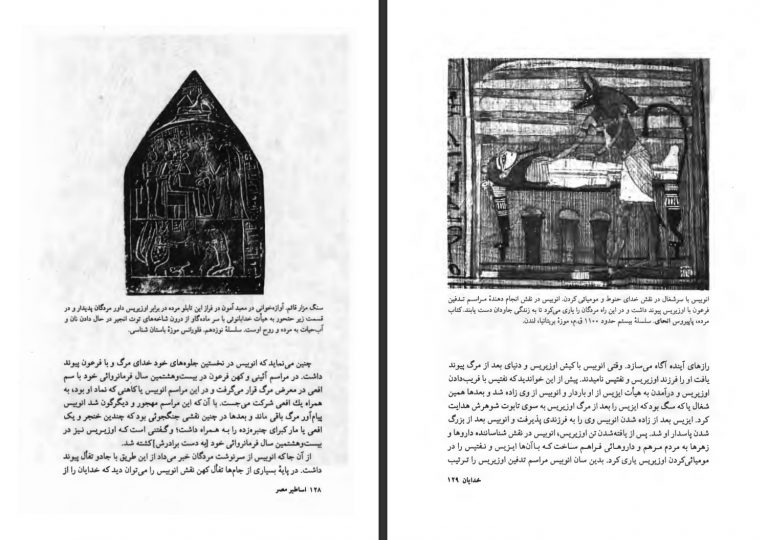 سنگ مزار قائم. آوازه‌خوانی در معبد آمون در فراز این تابلو مرده در برابر اوزیریس داور مردگان پدیدار و در
قسمت زیر حتحور به هیأت خدابانوئی با سر ماده‌گاو از درون شاخه‌های توت انجیر در حال دادن نان و
آب‌حیات به مرده و روح اوست. سلسلهٔ نوزدهم. فلورانس موزهٔ باستان شناسی.
چنین می‌نماید که انوبیس در نخستین جلوه‌های خود خدای مرگ و با فرعون پیوند
داشت. در مراسم آئینی و کهن فرعون در بیست‌وهشتمین سال فرمانروائی خود با سم
افعی در معرض مرگ قرار می‌گرفت و در این مراسم انوبیس یا کاهنی که نماد او بود، به
همراه یك افعی شرکت می‌جست. با آن که این مراسم مهجور و دیگرگون شد انوبیس
پیام‌آور مرگ باقی ماند و بعدها در چنین نقشی جنگجوئی بود که چندین خنجر و یک
افعی یا مار کبرای چنبرزده را به همراه داشت؛ و گفتنی است که اوزیریس نیز در
بیست‌وهشتمین سال فرمانروائی خود [به دست برادرش] کشته شد.
از آن جا که انوبیس از سرنوشت مردگان خبر می‌داد از این طریق با جادو تفأل پیوند
داشت. در پایهٔ بسیاری از جام‌ها تفأل کهن نقش انوبیس را می‌توان دید که خدایان را از
۱۲۸ اساطیر مصر
انوبیس با سرشغال در نقش خدای حنوط و مومیائی کردن. انوبیس در نقش انجام دهندهٔ مراسم تدفین
فرعون با اوزیریس پیوند داشت و در این راه مردگان را یاری می‌کرد تا به زندگی جاودان دست یابند. کتاب
مرده، پاپیروس انحای. سلسلهٔ بیستم حدود ۱۱۰۰ ق.م، موزهٔ بریتانیا، لندن.
رازهای آینده آگاه می‌سازد. وقتی انوبیس با کیش اوزیریس و دنیای بعد از مرگ پیوند
یافت او را فرزند اوزیریس و نفتیس نامیدند. پیش از این خواندید که نفتیس با فریب‌دادن
اوزیریس و درآمدن به هیأت ایزیس از او باردار و انوبیس از وی زاده شد و بعدها همین
شغال یا که سگ بود که ایزیس را بعد از مرگ اوزیریس به سوی تابوت شوهرش هدایت
کرد. ایزیس بعد از زاده شدن انوبیس وی را به فرزندی پذیرفت و انوبیس بعد از بزرگ
شدن پاسدار او شد. پس از یافته‌شدن تن اوزیریس، انوبیس در نقش شناساننده داروها و
زهرها به مردم مرهم و داروهائی فراهم ساخت که با آن‌ها ایزیس و نفتیس را در
مومیائی‌کردن اوزیریس یاری کرد. بدین سان انوبیس مراسم تدفین اوزیریس را ترتیب
خدایان ۱۲۹